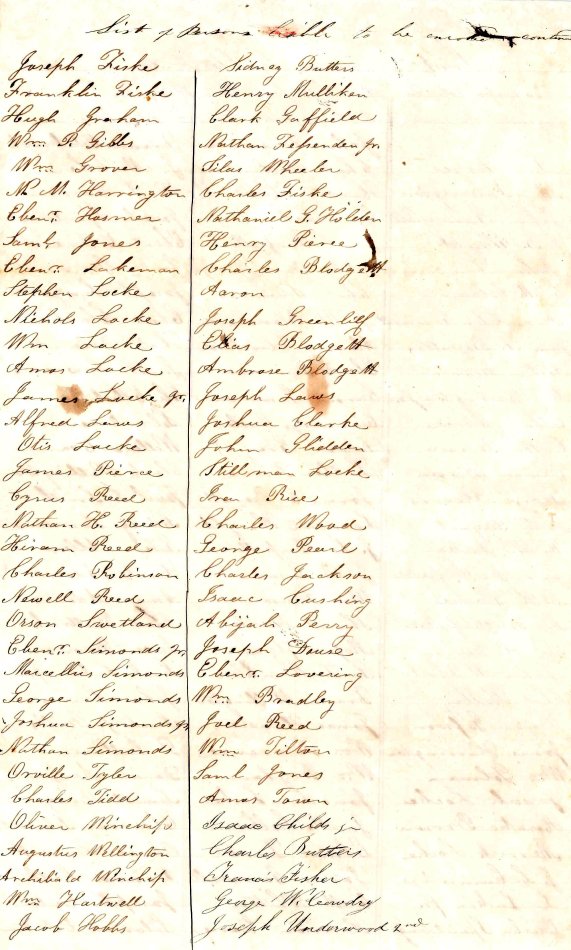 List of Persons liable to be
Joseph Fiske
Franklin Fiske
Hugh Graham
Wm P. Gibbs
Wm Grover
N. M. Harrington
Ebenr. Hosmer
Saml Jones
Ebenr. Lakeman
Stephen Locke
Nichols Locke
Wm Locke
Amos Locke
James Locke jr.
Alfred Laws
Otis Locke
James Pierce
Cyrus Reed
Nathan H. Reed
Hiram Reed
Charles Robinson
Newell Reed
Orson Swetland
Ebenr. Simonds jr
Marcellus Simonds
George Simonds
Joshua Simonds jr
Nathan Simonds
Orville Tyler
Charles Tidd
Oliver Winchip
Augustus Wellington
Archibald Winchip
Wm Hartwell
Jacob Hobbs
Sidney Butters
Henry Mulliken
Clark Gaffield
Nathan Fessenden jr
Silas Wheeler
Charles Fiske
Nathaniel G. Holden
Henry Pierce
Charles Blodgett
Aaron
Joseph Greenlief
Elias Blodgett
Ambrose Blodgett
Joseph Laws
Joshua Clarke
John Glidden
Stillman Locke
Ira Rice
Charles Wood
George Pearl
Charles Jackson
Isaac Cushing
Abijah Perry
Joseph
Ebenr. Lovering
Wm Bradley
Joel Reed
Wm Tilton
Saml Jones
Amos Town
Isaac Childs jr
Charles Butters
Francis Fisher
George W. Cowdry
Joseph Underwood 2nd